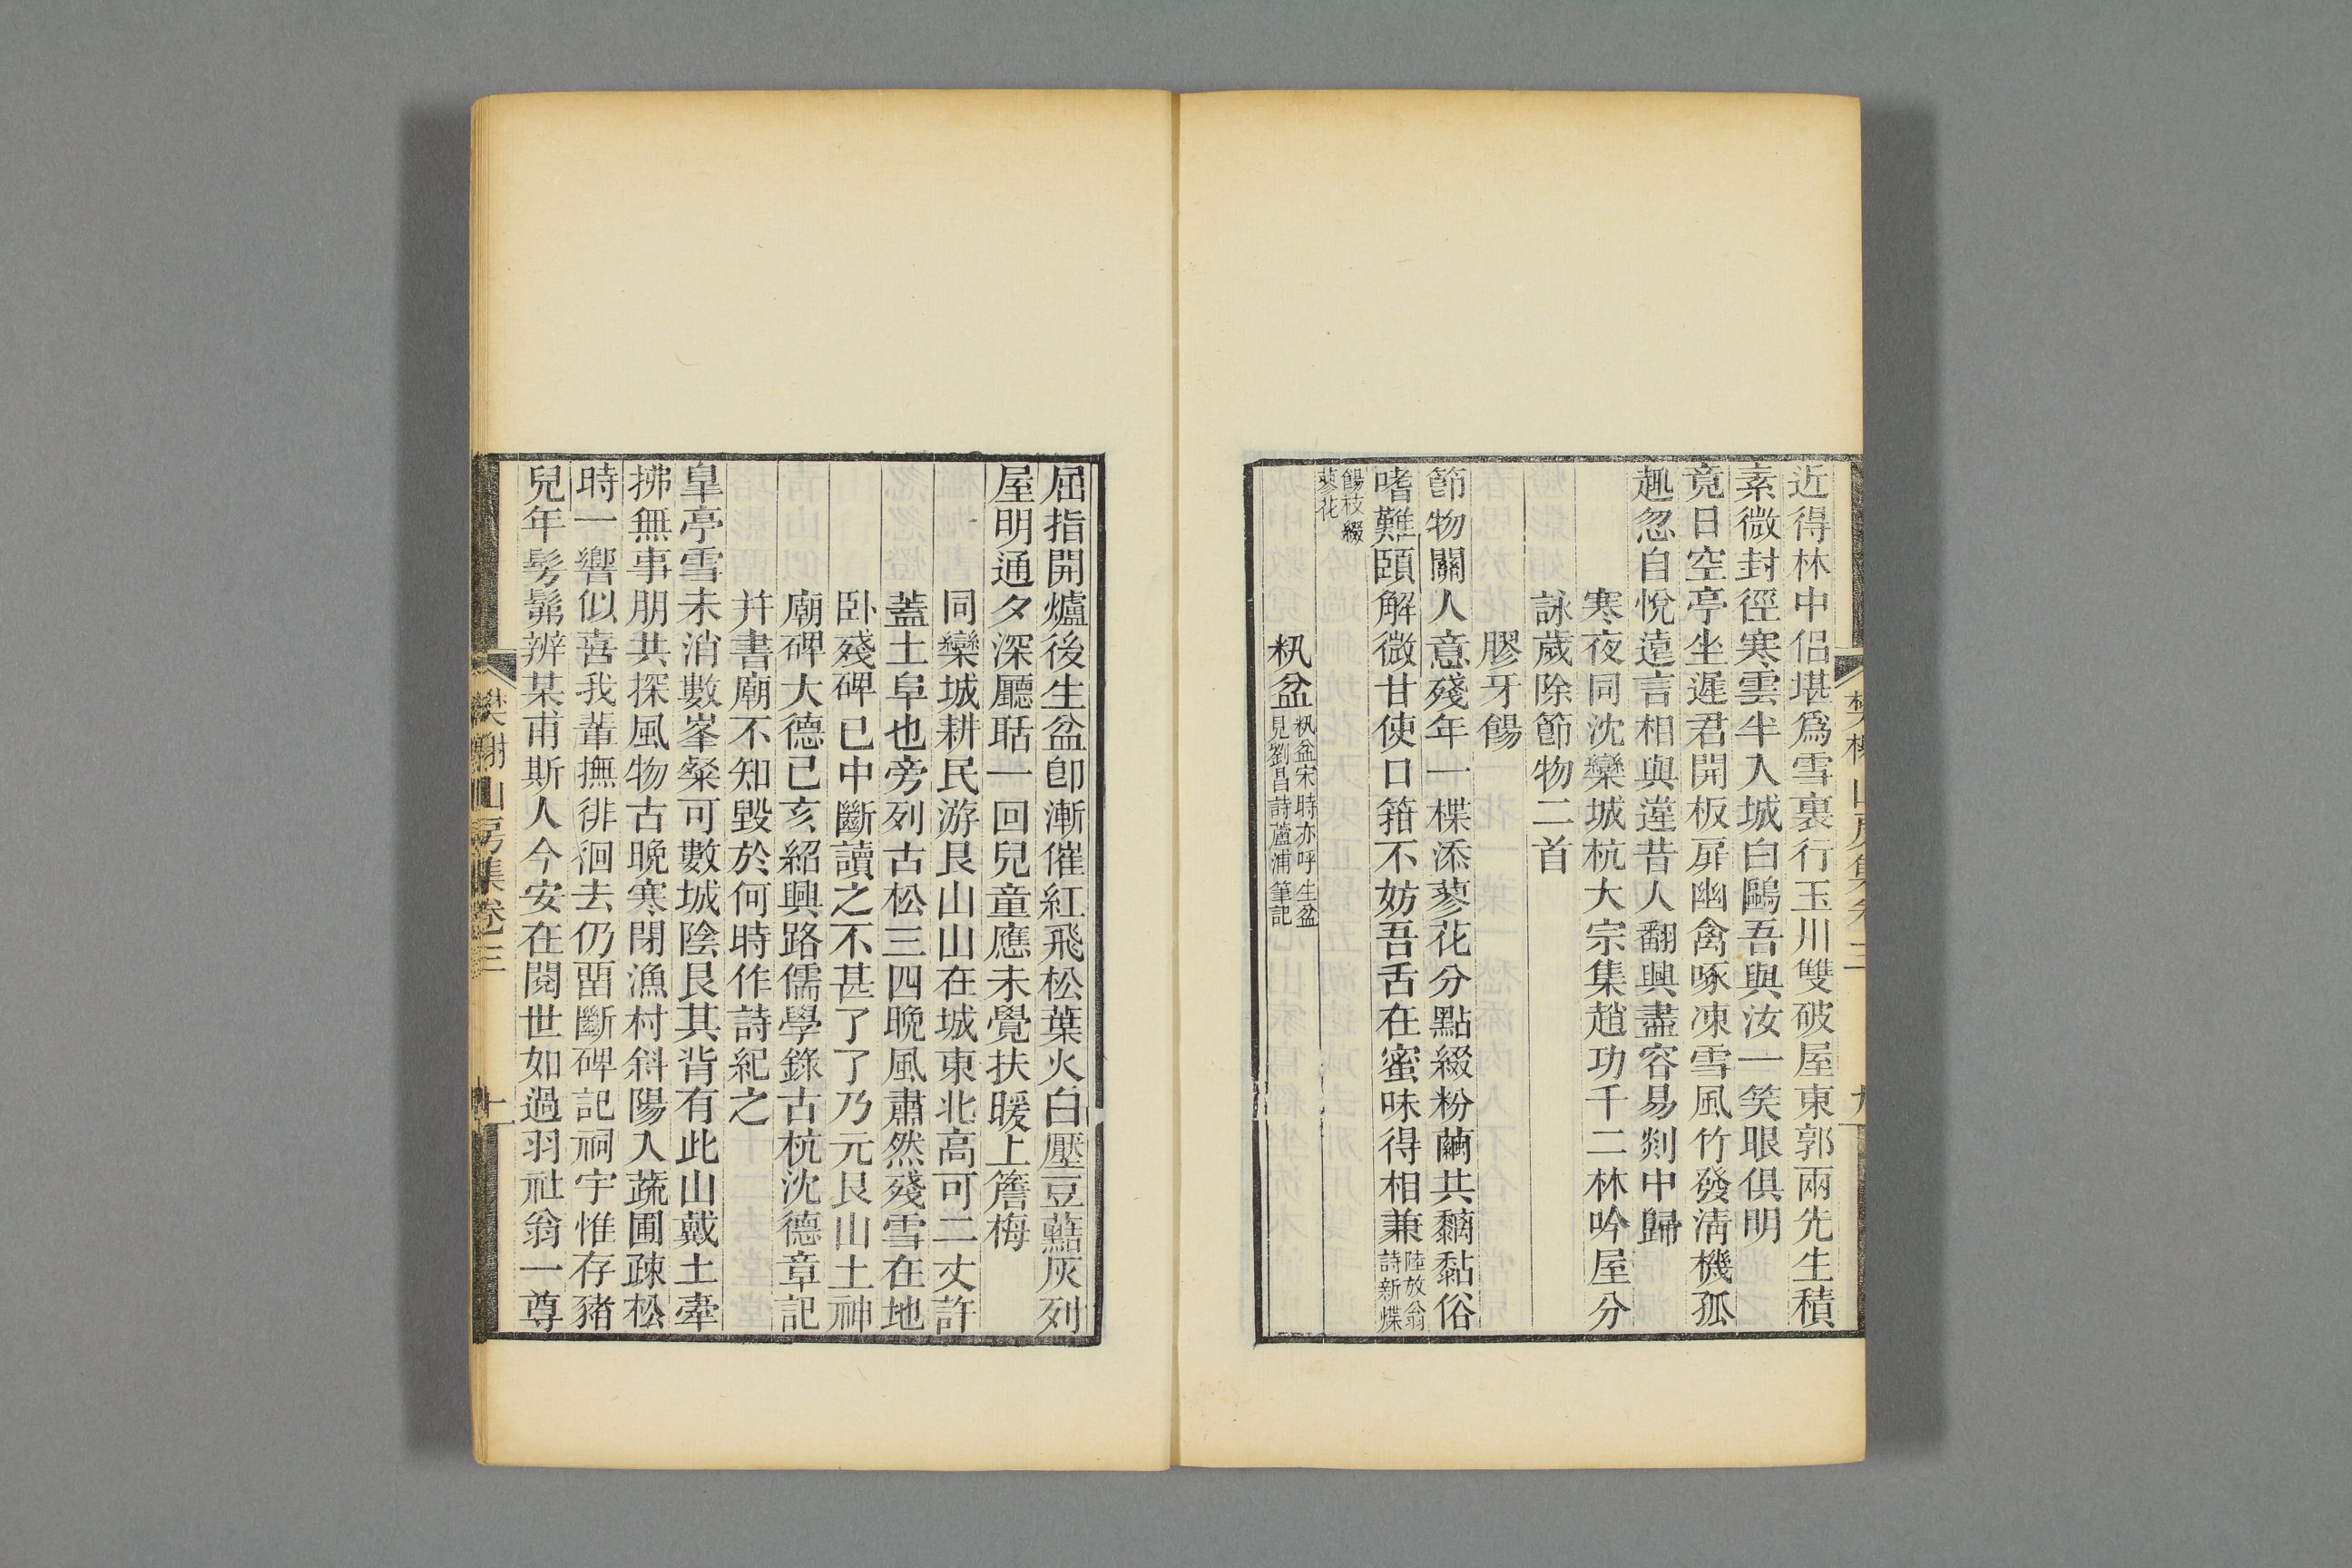 近得林中侶堪爲雪裏行玉川雙破屋東郭兩先生積
素微封徑寒雲半入城白鷗吾與汝一笑眼俱明
竟日空亭坐遲君開板扉幽禽啄凍雪風竹發淸機孤
趣忽自悅遠言相與違昔人翻興盡容易剡中歸
寒夜同沈欒城杭大宗集趙功千二林吟屋分
詠歲除節物二首
膠牙餳
節物關人意殘年一楪添蓼花分點綴粉繭共黐黏俗
嗜難頤解微甘使口箝不妨吾舌在蜜味得相兼陸放翁詩新蝶
餳枝綴蓼花
籸盆籸盆宋時亦呼生盆見劉昌詩蘆浦筆記
屈指開爐後生盆卽漸催紅飛松葉火白壓豆䕸灰列
屋明通夕深廳聒一回兒童應未覺扶暖上簷梅
同欒城耕民游艮山山在城東北高可二丈許
蓋土阜也旁列古松三四晚風肅然殘雪在地
卧殘碑已中斷讀之不甚了了乃元艮山土神
廟碑大德已亥紹興路儒學錄古杭沈德章記
幷書廟不知毀於何時作詩紀之
皐亭雪未消數峯粲可數城陰艮其背有此山戴土牽
拂無事朋共探風物古晚寒閉漁村斜陽入蔬圃疎松
時一響似喜我輩撫徘徊去仍畱斷碑記祠宇惟存豬
兒年髣髴辨某甫斯人今安在閱世如過羽社翁一尊
樊榭山房集卷三